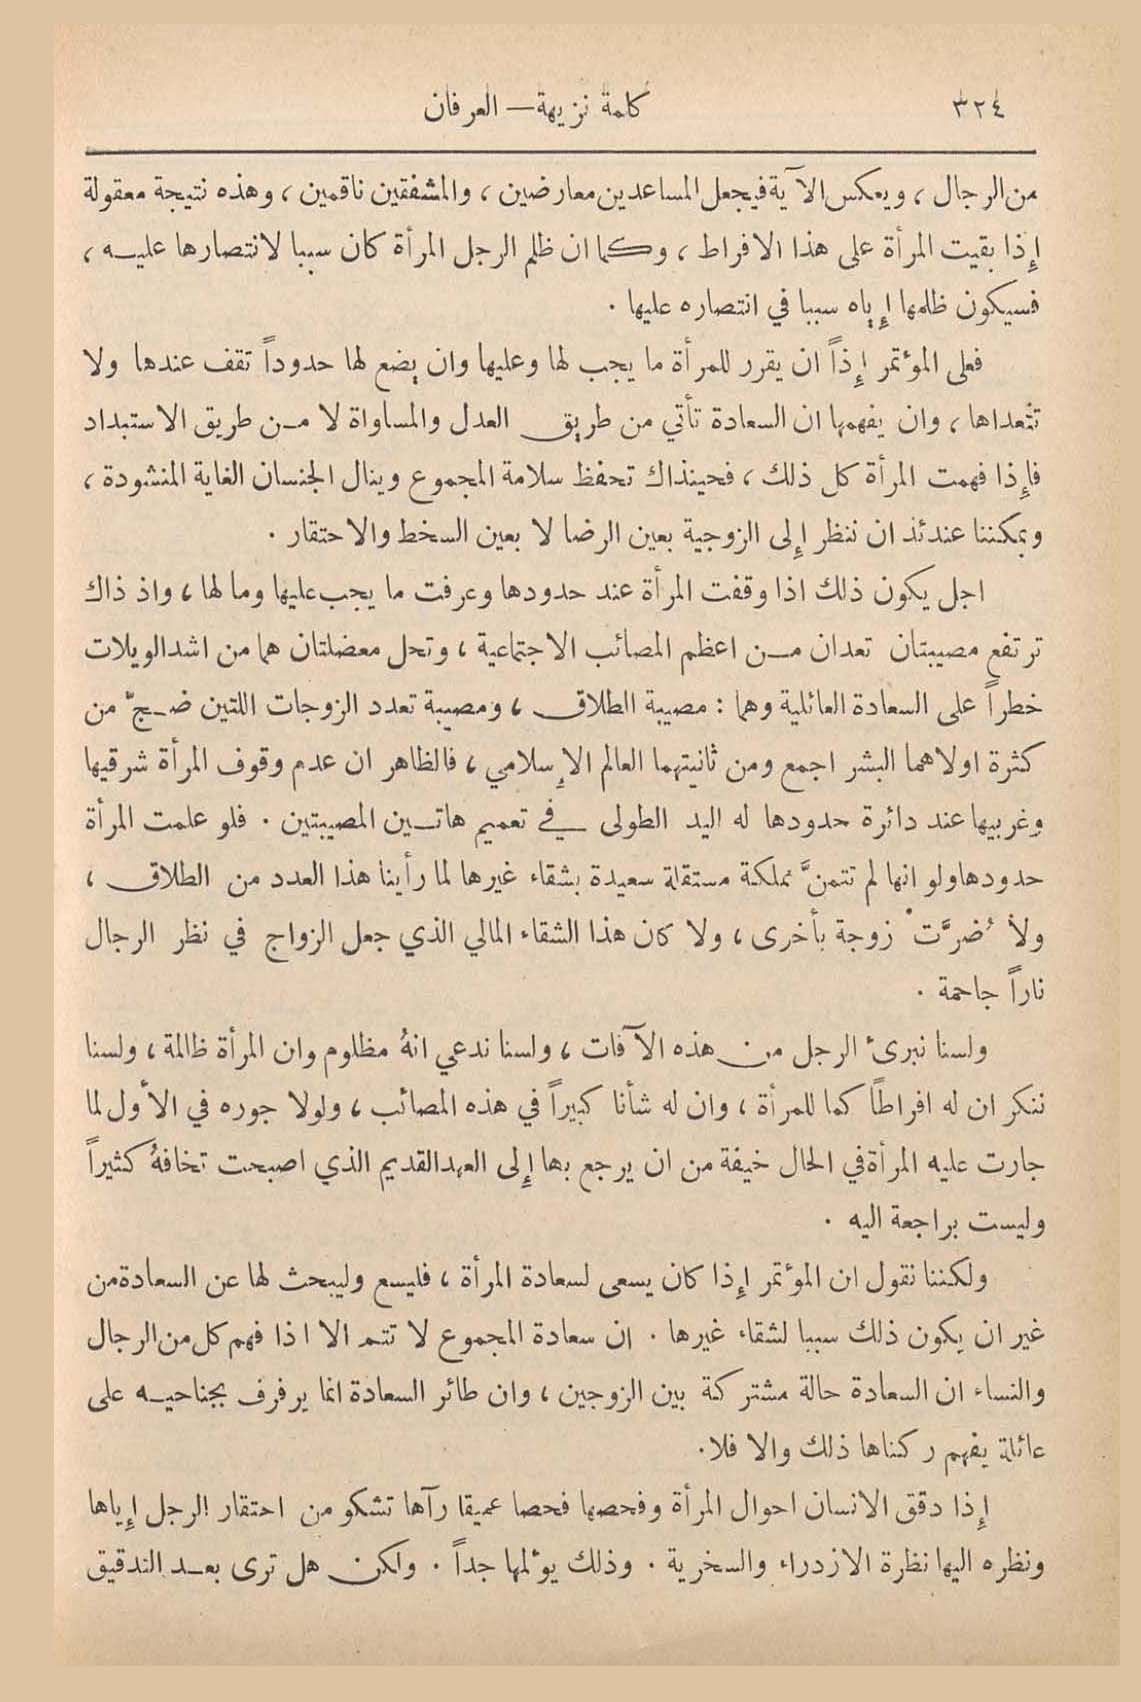 ٣٢٤
كلمة نزيهة — العرفان
من الرجال ، ويعكس الآية فيجعل المساعدين معارضين ، والمشفقين ناقمين ، وهذه نتيجة معقولة
إِذا بقيت المرأة على هذا الافراط ، وكما ان ظلم الرجل المرأة كان سببا لانتصارها عليه ،
فسيكون ظلمها إِياه سببا في انتصاره عليها .
فعلى المؤتمر إِذاً ان يقرر للمرأة ما يجب لها وعليها وان يضع لها حدوداً تقف عندها ولا
تتعداها ، وان يفهمها ان السعادة تأتي من طريق العدل والمساواة لا من طريق الاستبداد
فإِذا فهمت المرأة كل ذلك ، فحينذاك تحفظ سلامة المجموع وينال الجنسان الغاية المنشودة ،
ويمكننا عندئذ ان ننظر إِلى الزوجية بعين الرضا لا بعين السخط والاحتقار .
اجل يكون ذلك اذا وقفت المرأة عند حدودها وعرفت ما يجب عليها وما لها ، واذ ذاك
ترتفع مصيبتان تعدان من اعظم المصائب الاجتماعية ، وتحل معضلتان هما من اشد الويلات
خطراً على السعادة العائلية وهما : مصيبة الطلاق ، ومصيبة تعدد الزوجات اللتين ضجّ من
كثرة اولاهما البشر اجمع ومن ثانيتهما العالم الإِسلامي ، فالظاهر ان عدم وقوف المرأة شرقيها
وغربيها عند دائرة حدودها له اليد الطولى في تعميم هاتين المصيبتين . فلو علمت المرأة
حدودها ولو انها لم تتمنَّ مملكة مستقلة سعيدة بشقاء غيرها لما رأينا هذا العدد من الطلاق ،
ولا أُضرَّتْ زوجة بأخرى ، ولا كان هذا الشقاء المالي الذي جعل الزواج في نظر الرجال
ناراً جاحمة .
ولسنا نبرئ الرجل من هذه الآفات ، ولسنا ندعي انهُ مظلوم وان المرأة ظالمة ، ولسنا
ننكر ان له افراطاً كما للمرأة ، وان له شأنا كبيراً في هذه المصائب ، ولولا جوره في الأول لما
جارت عليه المرأة في الحال خيفة من ان يرجع بها إِلى العهد القديم الذي اصبحت تخافهُ كثيراً
وليست براجعة اليه .
ولكننا نقول ان المؤتمر إِذا كان يسعى لسعادة المرأة ، فليسع وليبحث لها عن السعادة من
غير ان يكون ذلك سببا لشقاء غيرها . ان سعادة المجموع لا تتم الا اذا فهم كل من الرجال
والنساء ان السعادة حالة مشتركة بين الزوجين ، وان طائر السعادة انما يرفرف بجناحيه على
عائلة يفهم ركناها ذلك والا فلا.
إِذا دقق الانسان احوال المرأة وفحصها فحصا عميقا رآها تشكو من احتقار الرجل إِياها
ونظره اليها نظرة الازدراء والسخرية . وذلك يؤلمها جداً . ولكن هل ترى بعد التدقيق